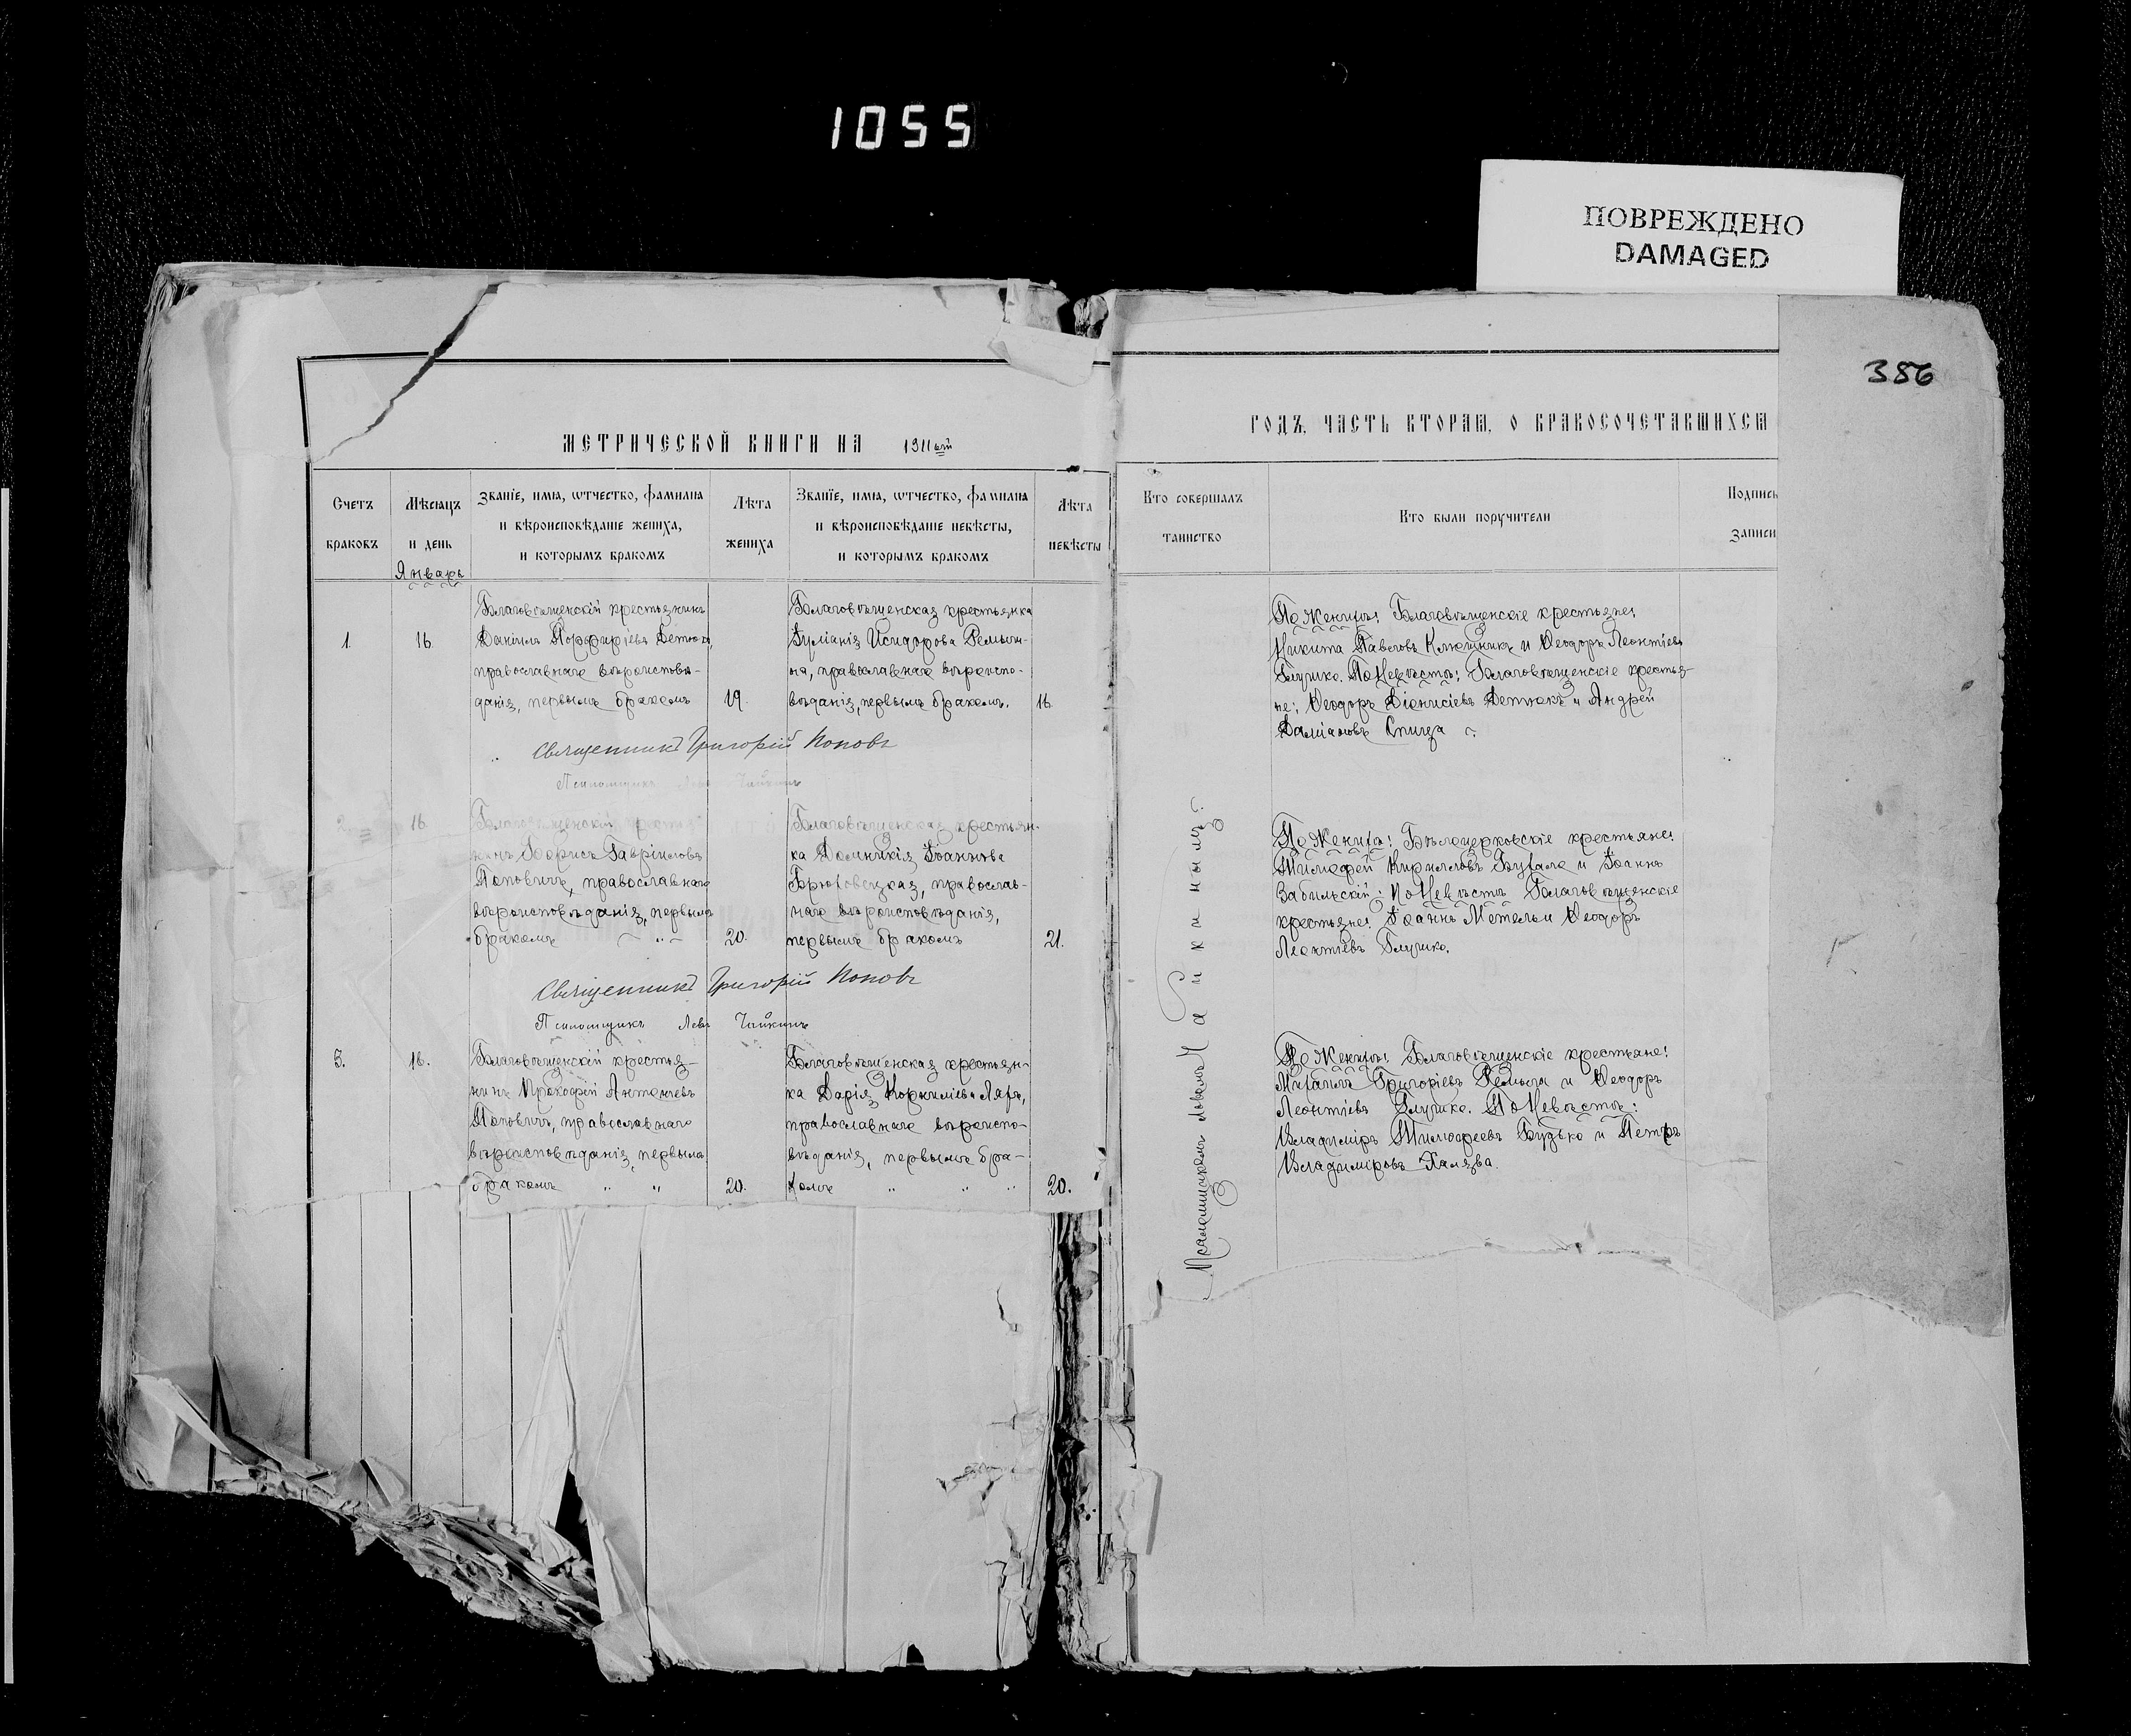 1055
ПОВРЕЖДЕНО
DAMAGED
386
МЕТРИЧЕСКОЙ КНИГИ НА 1911ый
ГОДЪ, ЧАСТЬ ВТОРАЯ, О БРАКОСОЧЕТАВШИХСЯ
Счетъ
браковъ
Мѣсяцъ
и день
Январь
Званіе, имя, отчество, фамилия
и вѣроисповѣданіе жениха,
и которымъ бракомъ
Лѣта
жениха
Званїе, имя, отчество, фамилия
и вѣроисповѣданіе невѣсты,
и которымъ бракомъ
Лѣта
невѣсты
Кто совершалъ
таинство
Кто были поручители
Подпись
записи
1.
16
Благовѣщенскій крестьянинъ
Даніилъ Порфиріевъ
православнаго вѣроисповѣ-
данія, первымъ бракомъ
19.
Благовѣщенская крестьянка
Іуліанія Исидорова
на, православнаго вѣроиспо-
вѣданія, первымъ бракомъ.
16
По Женихѣ: Благовѣщенскіе крестьяне:
Никита Павловъ Ключникъ и Ѳеодоръ Леонтіевъ
Глушко. По Невѣстѣ: Благовѣщенскіе крестья-
не: Ѳеодоръ Діонисіевъ и Андрей
Даміановъ Спица
Священникъ Григорій Поповъ
Псаломщикъ Левъ Чайкинъ
2.
16
Благовѣщенскій крестья-
нинъ Борисъ Гавріиловъ
Поповичъ, православнаго
вѣроисповѣданія, первымъ
бракомъ
20.
Благовѣщенская крестьян-
ка Домникія Іоаннова
Брюховецкая, православ-
наго вѣроисповѣданія,
первымъ бракомъ
21.
По Женихѣ: Бѣлоцерковскіе крестьяне:
Тимофей Кирилловъ и Іоаннъ
Забильскій; По Невѣстѣ Благовѣщенскіе
крестьяне: Іоаннъ и Ѳеодоръ
Леонтіевъ Глушко.
Священникъ Григорій Поповъ
Псаломщикъ Левъ Чайкинъ
3.
16.
Благовѣщенскій крестья-
нинъ Прокофій Антоніевъ
Поповичъ, православнаго
вѣроисповѣданія, первымъ
бракомъ " "
20.
Благовѣщенская крестьян-
ка Дарія Корниліева
православнаго вѣроиспо-
вѣданія, первымъ бра-
комъ " " "
20.
По Женихѣ: Благовѣщенскіе крестьяне:
Михаилъ Григоріевъ и Ѳеодоръ
Леонтіевъ Глушко. По Невѣстѣ:
Владиміръ Тимофеевъ Будько и Петръ
Владиміровъ Халява.
Псаломщикомъ Львомъ Чайкинымъ